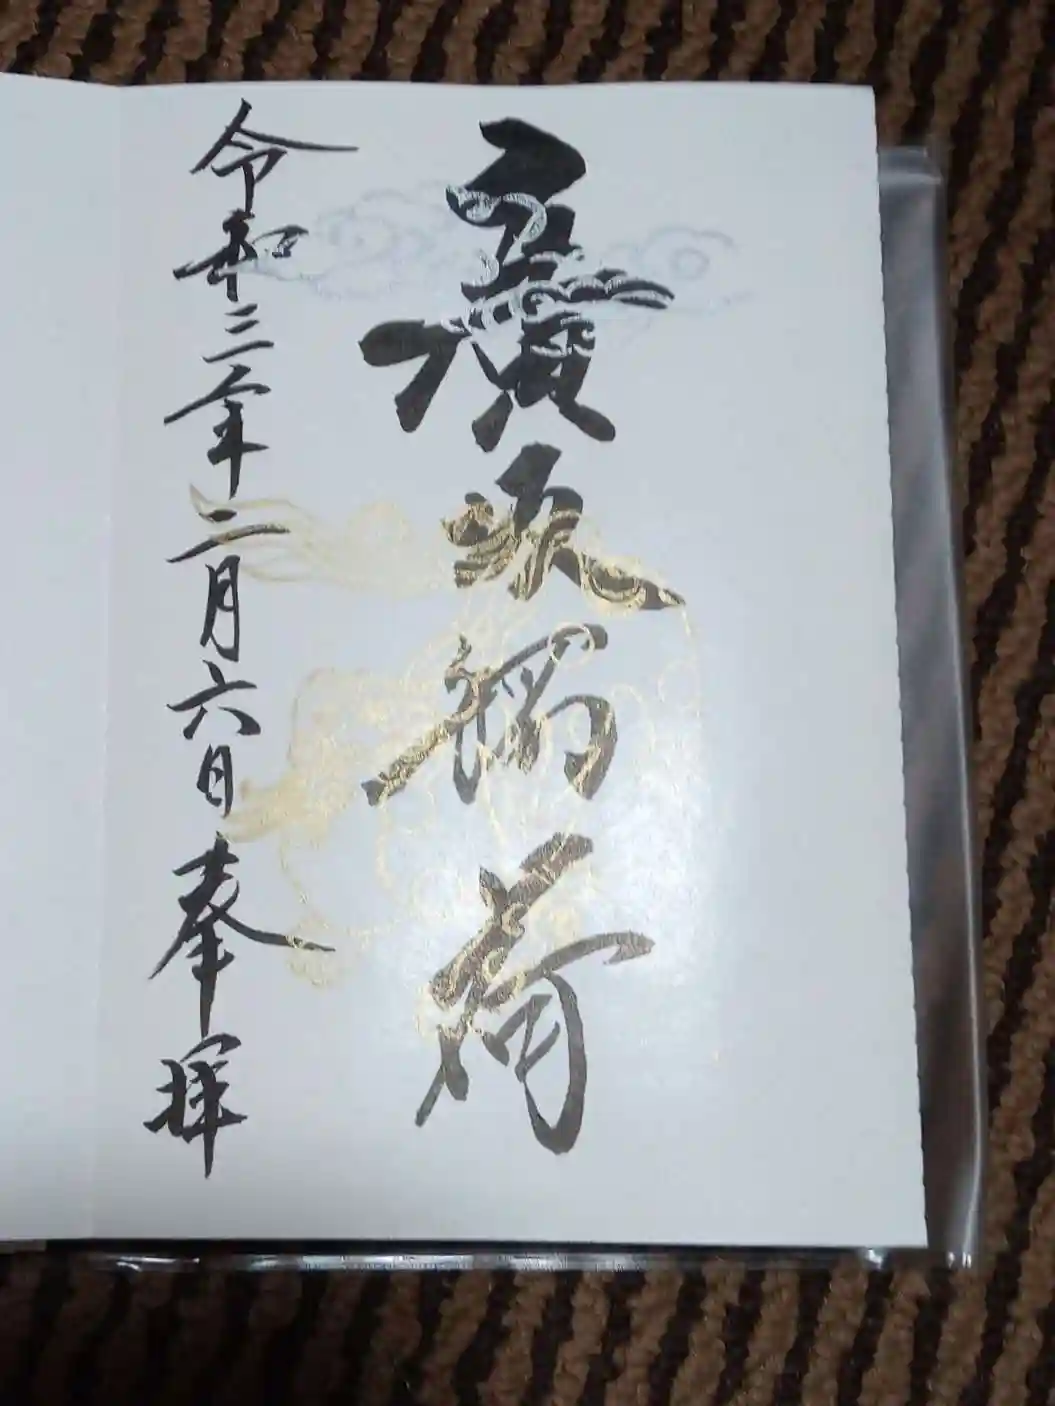 稲荷
令和三年二月六日奉拝